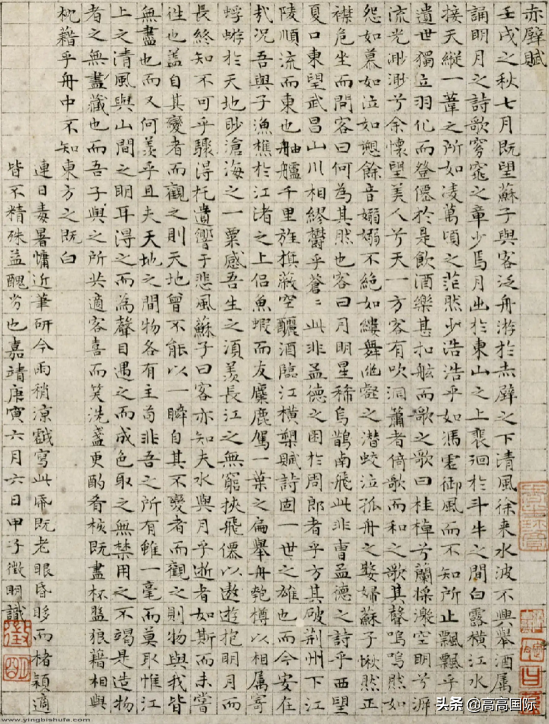 赤壁賦
壬戌之秋七月既望蘇子與客泛舟游於赤壁之下清風徐来水波不興舉酒属
誦明月之詩歌窈窕之章少焉月出於東山之上裴徊於斗牛之間白露横江水
接天縱一葦之所如凌萬頃之茫然浩浩乎如馮虚御風而不知所止飄飄乎
遺世獨立羽化而登僊於是飲酒樂甚扣舷而歌之歌曰桂棹兮蘭採激空明兮泝
流光渺渺兮余懷望美人兮天一方客有吹洞蕭者倚歌而和之其聲嗚嗚然如
怨如慕如泣如訴餘音嫋嫋不絶如縷舞幽壑之潛蛟泣孤舟之嫠婦蘇子愀然正
襟危坐而問客曰何為其然也客曰月明星稀烏鵲南飛此非曹孟德之詩乎西望
夏口東望武昌山川相繆鬱乎蒼〻此非孟德之困於周郎者乎方其破荆州下江
陵順流而東也舳艫千里旌旗蔽空釃酒臨江横槊賦詩固一世之雄也而今安在
哉況吾與子漁樵於江渚之上侣魚蝦而友麋鹿駕一葉之扁舟舉匏樽以相属寄
蜉蝣於天地眇滄海之一粟感吾生之須羨長江之無窮挾飛僊以遨遊抱明月而
長終知不可乎驟得托遺響于悲風蘇子曰客亦知夫水與月乎逝者如斯而未嘗
往也盖自其變者而觀之則天地曾不能以一瞬自其不變者而觀之則物與我皆
無盡也而又何羨乎且夫天地之間物各有主苟非吾之所有雖一毫而莫取惟江
上之清風與山間之明耳得之而為聲目遇之而成色取之無禁用之不竭是造物
者之無盡藏也而吾子與之所共適客喜而笑洗盞更酌肴核既盡杯盤狼藉相與
枕藉乎舟中不知東方之既白
連日毒暑慵近筆研今雨稍涼戲寫此既老眼昏眵而楮穎適
皆不精殊益醜劣也嘉靖庚寅六月六日甲子徵明識
徵明
www.yingbishufa.com
头条 @高高国际